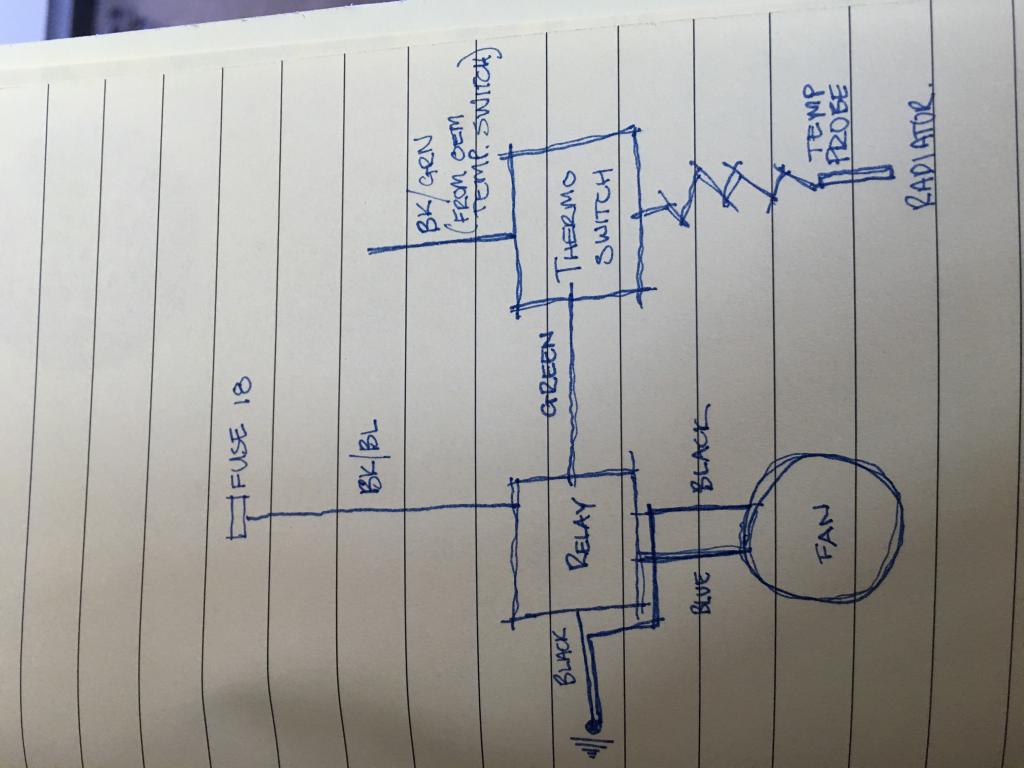 FUSE 18
BK/BL
BK/GRN
(FROM OEM
TEMP. SWITCH)
BLACK
RELAY
GREEN
THERMO
SWITCH
BLUE
BLACK
FAN
TEMP
PROBE
RADIATOR.